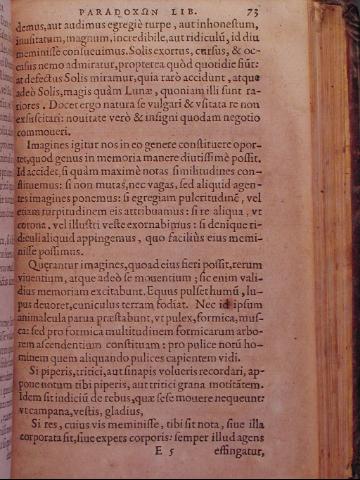 PARADOXΩN LIB. 73
demus, aut audimus egregiè turpe, aut inhonestum,
inusitatum, magnum, incredibile, aut ridiculũ, id diu
meminisse consueuimus. Solis exortus, cursus, & oc-
casus nemo admiratur, propterea quòd quotidie fiũt:
at defectus Solis miramur, quia rarò accidunt, atque
adeò Solis, magis quàm Lunæ, quoniam illi sunt ra-
riores. Docet ergo natura se vulgari & vsitata re non
exsuscitari: nouitate verò & insigni quodam negotio
commoueri.
Imagines igitur nos in eo genete constituere opor-
tet, quod genus in memoria manere diutissimè possit.
Id accidet, si quàm maximè notas similitudines con-
stituemus: si non mutas, nec vagas, sed aliquid agen-
tes imagines ponemus: si egregiam pulcritudinẽ, vel
etiam turpitudinem eis attribuamus: si re aliqua, vt
corona, vel illustri veste exornabimus: si denique ri-
diculi aliquid appingemus, quo faciliùs eius memi-
nisse possimus.
Quærantur imagines, quoad eius fieri possit, rerum
viuentium, atque adeò se mouentium; sic enim vali-
dius memoriam excitabunt. Equus pulset humũ, lu-
pus deuoret, cuniculus terram fodiat. Nec id ipsum
animalcula parua præstabunt, vt pulex, formica, mus-
ca: sed pro formica multitudinem formicarum arbo-
rem ascendentium constituam: pro pulice notũ ho-
minem quem aliquando pulices capientem vidi.
Si piperis, tritici, aut sinapis volueris recordari, ap-
pone notum tibi piperis, aut tritici grana motitãtem.
Idem sit indiciũ de rebus, quæ sese mouere nequeunt:
vt campana, vestis, gladius,
Si res, cuius vis meminisse, tibi sit nota, siue illa
corporata sit, siue expers corporis: semper illud agens
E 5 effingatur,